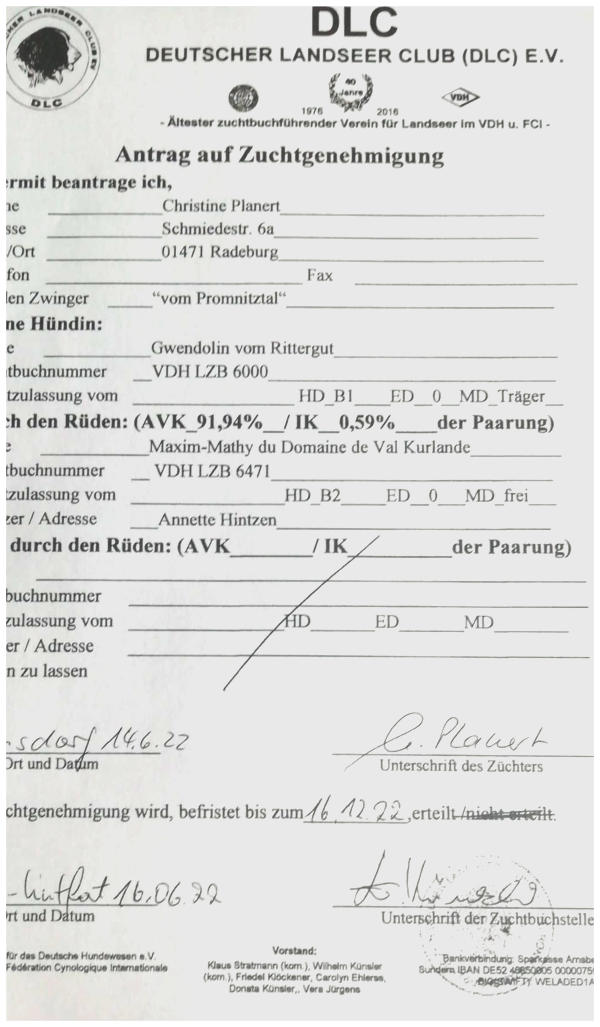 DEUTSCHER LANDSEER CLUB EV
DLC
DLC
DEUTSCHER LANDSEER CLUB (DLC) E.V.
40 Jahre
VDH
1976 2016
- Ältester zuchtbuchführender Verein für Landseer im VDH u. FCI -
Antrag auf Zuchtgenehmigung
ermit beantrage ich,
ne Christine Planert
sse Schmiedestr. 6a
/Ort 01471 Radeburg
fon Fax
len Zwinger “vom Promnitztal“
ne Hündin:
e Gwendolin vom Rittergut
tbuchnummer VDH LZB 6000
tzulassung vom HD_B1 ED_0 MD_Träger
ch den Rüden: (AVK_91,94%_/ IK_0,59%_ der Paarung)
e Maxim-Mathy du Domaine de Val Kurlande
tbuchnummer VDH LZB 6471
zulassung vom HD_B2 ED_0 MD_frei
zer / Adresse Annette Hintzen
durch den Rüden: (AVK / IK der Paarung)
buchnummer
zulassung vom HD ED MD
er / Adresse
n zu lassen
sdorf 14.6.22 G. Planert
Ort und Datum Unterschrift des Züchters
chtgenehmigung wird, befristet bis zum 16.12.22, erteilt /nicht erteilt.
16.06.22
rt und Datum Unterschrift der Zuchtbuchstelle
für das Deutsche Hundewesen e.V.
Fédération Cynologique Internationale
Vorstand:
Klaus Stratmann (kom.), Wilhelm Künsler
(kom.), Friedel Klöckener, Carolyn Ehlerss,
Donata Künsler,, Vera Jürgens
Bankverbindung: Sparkasse Arnsbe
Sundern IBAN DE52
WELADED1A